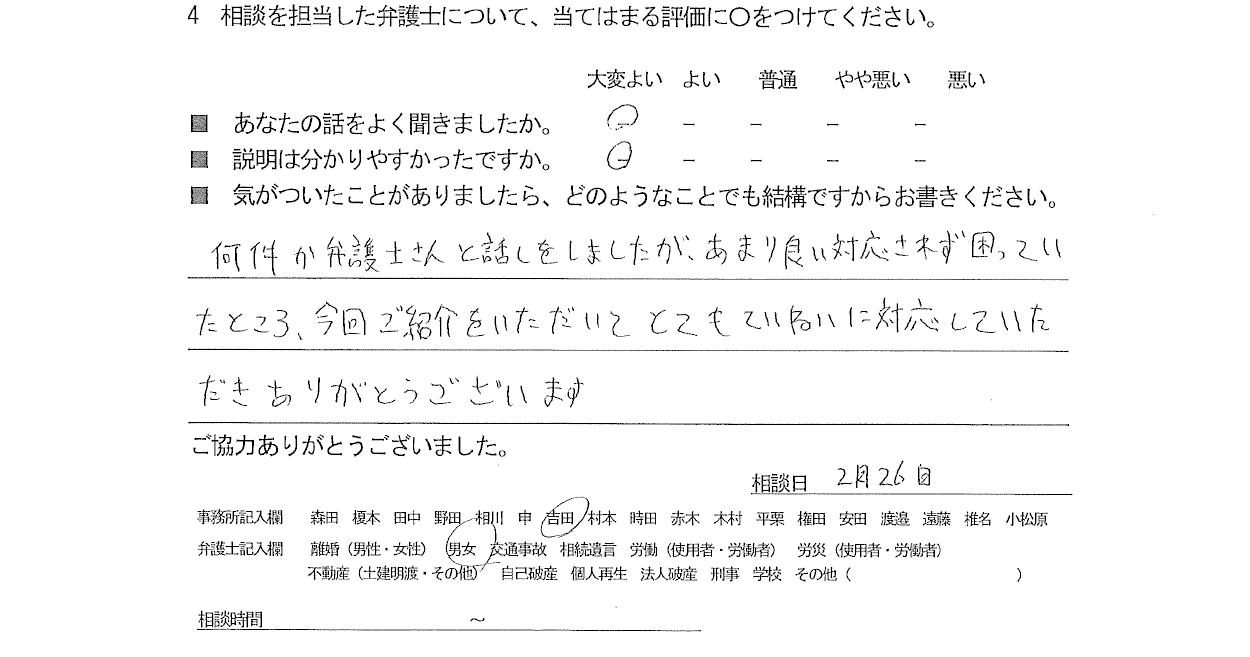 4 相談を担当した弁護士について、当てはまる評価に○をつけてください。
大変よい よい 普通 やや悪い 悪い
■ あなたの話をよく聞きましたか。 ○ － － － －
■ 説明は分かりやすかったですか。 ○ － － － －
■ 気がついたことがありましたら、どのようなことでも結構ですからお書きください。
何件か弁護士さんと話しをしましたが、あまり良い対応されず困ってい
たところ、今回ご紹介をいただいて とてもていねいに対応していた
だきありがとうございます
ご協力ありがとうございました。
相談日 2月26日
事務所記入欄 森田 榎本 田中 野田 相川 申 吉田 村本 時田 赤木 木村 平栗 権田 安田 渡邉 遠藤 椎名 小松原
弁護士記入欄 離婚（男性・女性） 男女 交通事故 相続遺言 労働（使用者・労働者） 労災（使用者・労働者）
不動産（土建明渡・その他） 自己破産 個人再生 法人破産 刑事 学校 その他（ ）
相談時間 ～